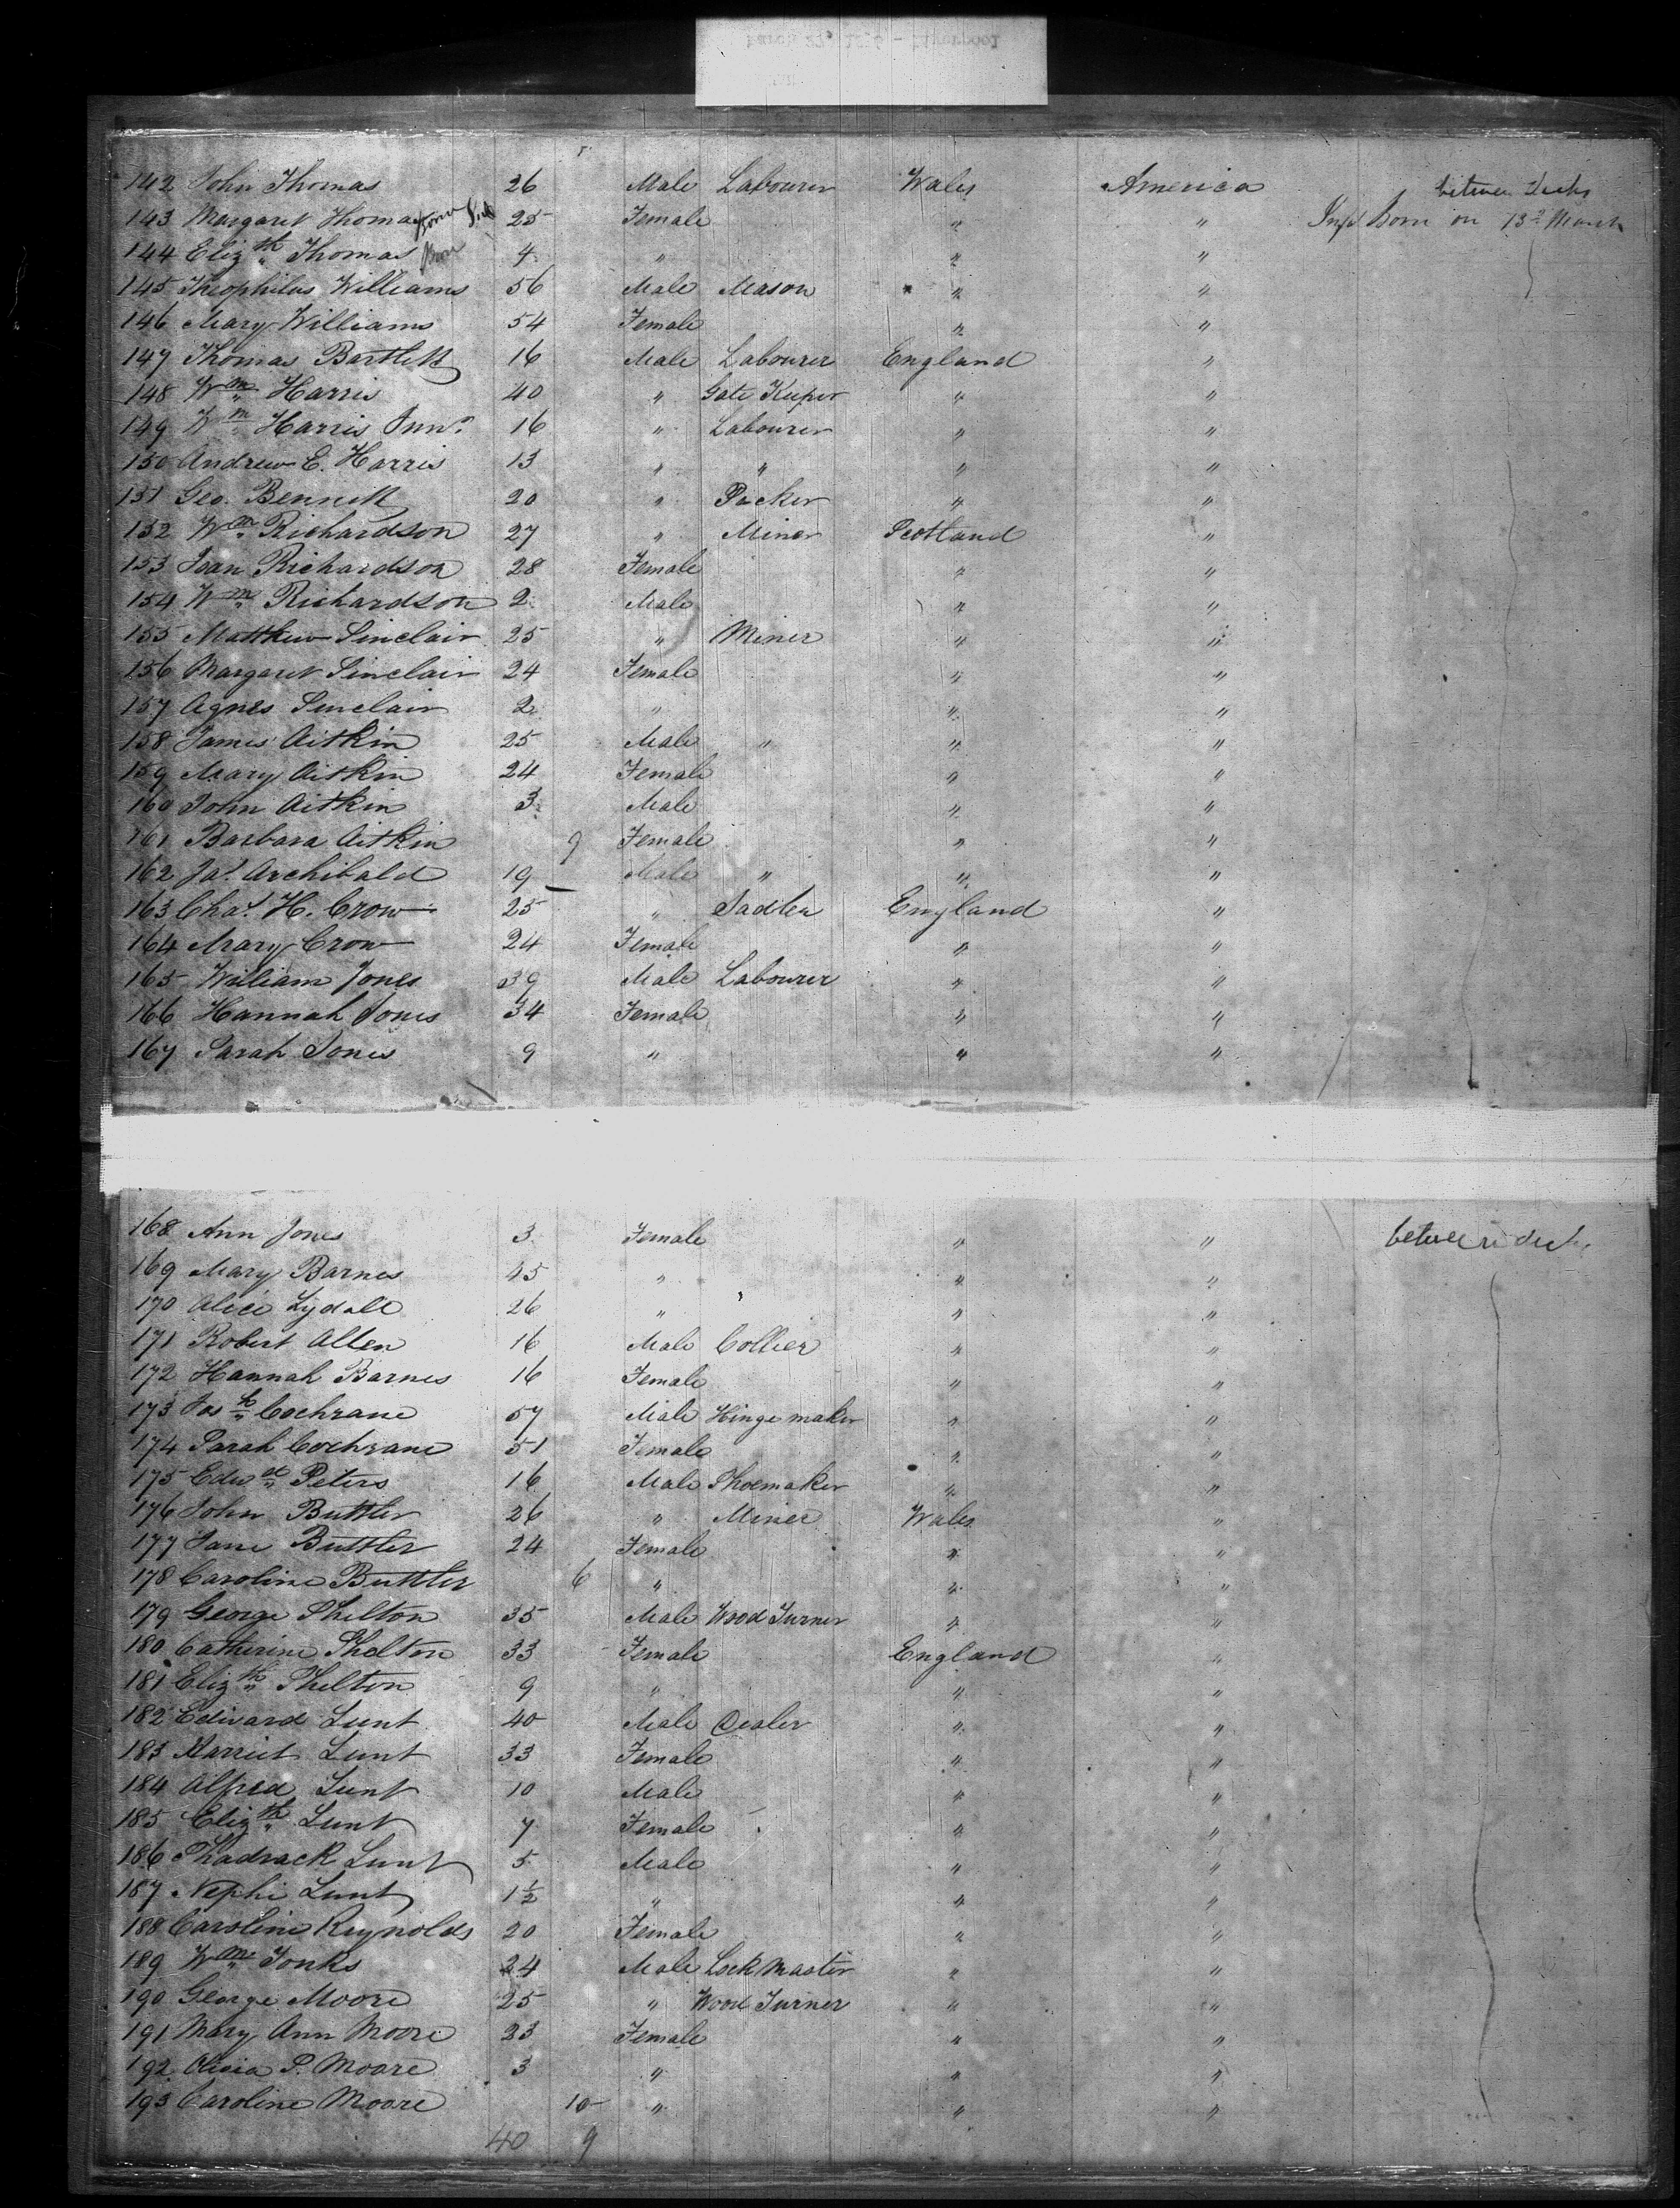 142 John Thomas 26 Male Labourer Wales America between decks
143 Margaret Thomas 25 Female " " Inft born on 13th March
144 Eliz th Thomas 4 " " "
145 Theophilus Williams 56 Male Mason " "
146 Mary Williams 54 Female " "
147 Thomas Bartlett 16 Male Labourer England "
148 Wm Harris 40 " Gate Keeper " "
149 Wm Harris Junr 16 " Labourer " "
150 Andrew E. Harris 13 " " " "
151 Geo. Bennett 20 " Packer " "
152 Wm Richardson 27 " Miner Scotland "
153 Jean Richardson 28 Female " "
154 Wm Richardson 2 Male " "
155 Matthew Sinclair 25 " Miner " "
156 Margaret Sinclair 24 Female " "
157 Agnes Sinclair 2 " " "
158 James Aitkin 25 Male " " "
159 Mary Aitkin 24 Female " "
160 John Aitkin 3 Male " "
161 Barbara Aitkin 9 Female " "
162 Jas. Archibald 19 Male " " "
163 Chas. H. Crow 25 " Sadler England "
164 Mary Crow 24 Female " "
165 William Jones 39 Male Labourer " "
166 Hannah Jones 34 Female " "
167 Sarah Jones 9 " " "
168 Ann Jones 3 Female " " between decks
169 Mary Barnes 45 " " "
170 Alice Lydall 26 " " "
171 Robert Allen 16 Male Collier " "
172 Hannah Barnes 16 Female " "
173 Jos h Cochrane 57 Male Hinge maker " "
174 Sarah Cochrane 51 Female " "
175 Edw d Peters 16 Male Shoemaker " "
176 John Buttler 26 " Miner Wales "
177 Jane Buttler 24 Female " "
178 Caroline Buttler 6 " " "
179 George Shelton 35 Male Wood Turner " "
180 Catherine Shelton 33 Female England "
181 Eliz th Shelton 9 " " "
182 Edward Lunt 40 Male Dealer " "
183 Harriet Lunt 33 Female " "
184 Alfred Lunt 10 Male " "
185 Eliz th Lunt 7 Female " "
186 Shadrack Lunt 5 Male " "
187 Nephi Lunt 1½ " " "
188 Caroline Reynolds 20 Female " "
189 Wm Tonks 24 Male Lock Master " "
190 George Moore 25 " Wood Turner " "
191 Mary Ann Moore 23 Female " "
192 Olivia P. Moore 3 " " "
193 Caroline Moore 10 " " "
40 9